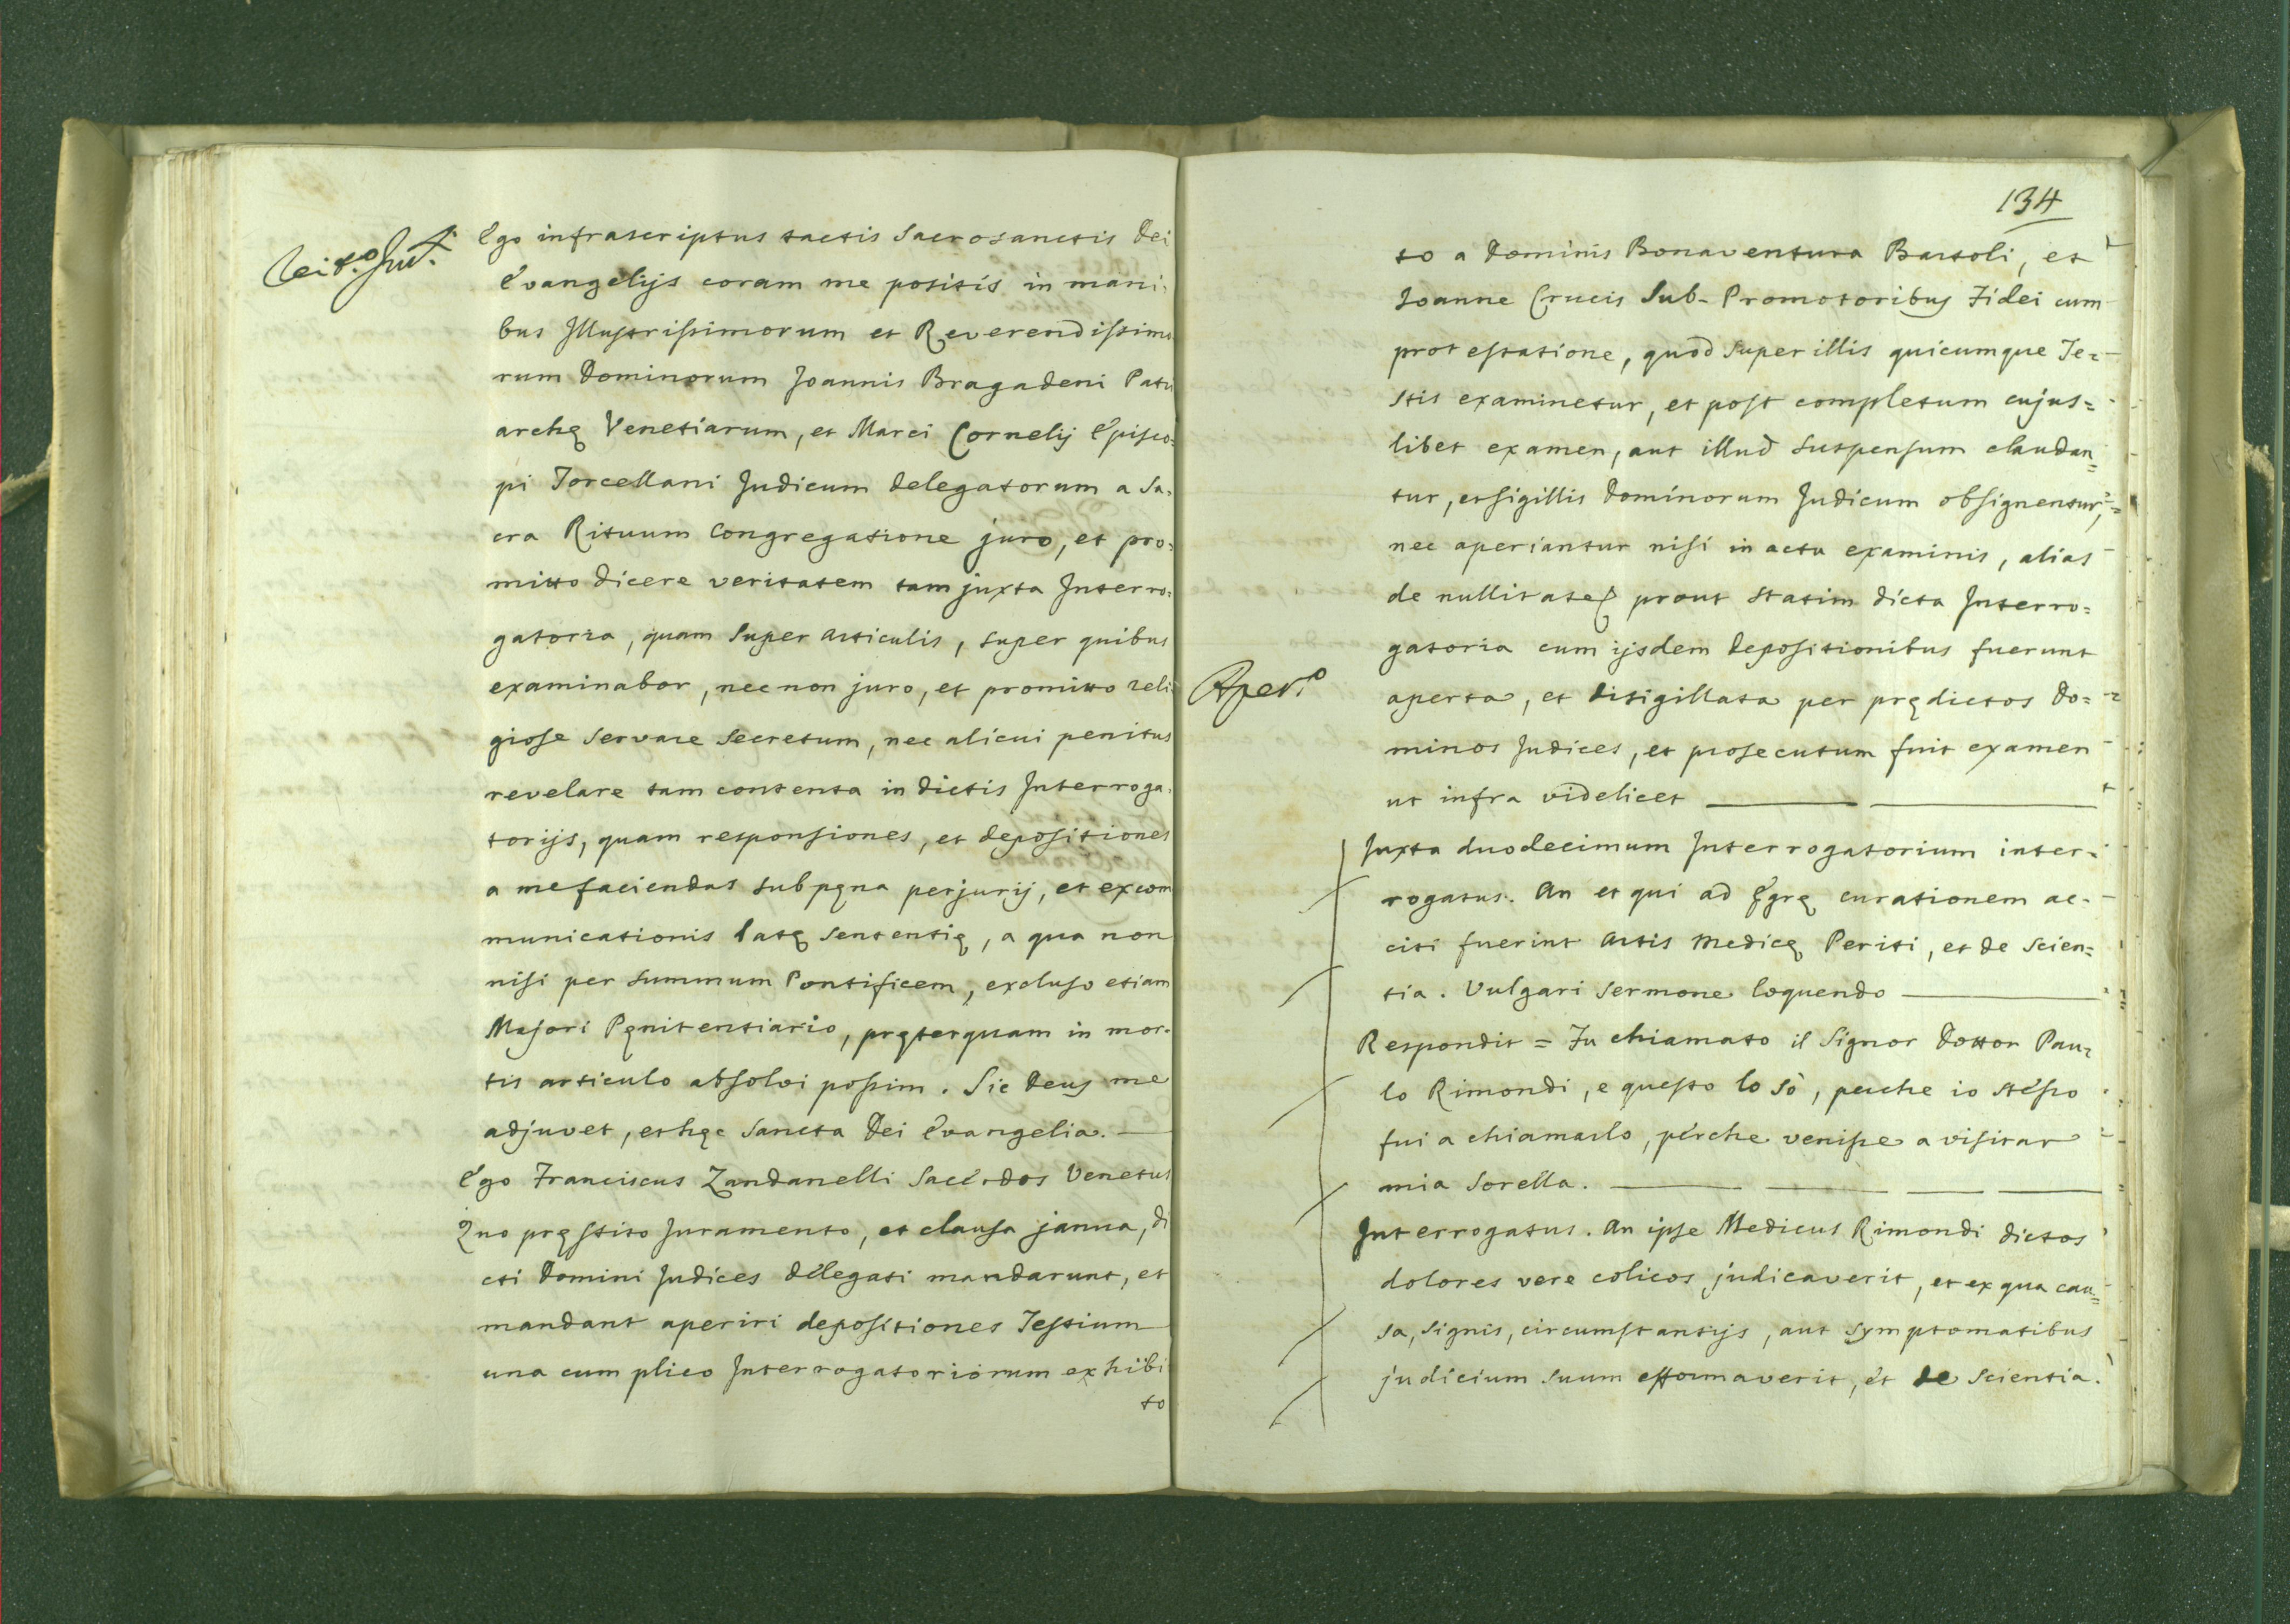 Ego infrascriptus tactis Sacrosanctis Dei
Evangelijs coram me positis in mani-
bus Illustrissimorum et Reverendissimo
rum Dominorum Joannis Bragadeni Patri
archę Venetiarum, et Marci Cornelij Episco=
pi Torcellani Judicum delegatorum a Sa=
cra Rituum Congregatione juro, et pro=
mitto dicere veritatem tam juxta Interro=
gatoria, quam super articulis, super quibus
examinabor, nec non juro, et promitto reli
giose servare secretum, nec alicui penitus
revelare tam contenta in dictis Interroga=
torijs, quam responsiones, et depositiones
a me faciendas sub pęna perjurij, et excom
municationis latę sententię, a qua non
nisi per summum Pontificem, excluso etiam
Majori Pęnitentiario, pręterquam in mor-
tis articulo absolvi possim. Sic Deus me
adjuvet, et hęc Sancta Dei Evangelia.
Ego Franciscus Zandanelli Sacerdos Venetus
Quo pręstito Juramento, et clausa janua, di
cti Domini Judices delegati mandarunt, et
mandant aperiri depositiones Testium
una cum plico Interrogatoriorum exhibi
to
134
to a Dominis Bonaventura Bartoli, et
Joanne Crucis Sub-Promotoribus Fidei cum
protestatione, quod super illis quicumque Te=
stis examinetur, et post completum cujus=
libet examen, aut illud suspensum claudan=
tur, et sigillis Dominorum Judicum obsignentur,
nec aperiantur nisi in actu examinis, alias
de nullitate prout statim dicta Interro=
gatoria cum ijsdem depositionibus fuerunt
Aper.o
aperta, et disigillata per prędictos Do=
minos Judices, et prosecutum fuit examen
ut infra videlicet
Juxta duodecimum Interrogatorium inter=
rogatus. An et qui ad Ęgrę curationem ac-
citi fuerint Artis Medicę Periti, et de scien=
tia. Vulgari sermone loquendo
Respondit = Fu chiamato il Signor Dottor Pau=
lo Rimondi, e questo lo sò, perche io stesso
fui a chiamarlo, perche venisse a visitar
mia Sorella.
Interrogatus. An ipse Medicus Rimondi dictos
dolores vere colicos judicaverit, et ex qua cau=
sa, signis, circumstantijs, aut symptomatibus
judicium suum efformaverit, et de scientia.